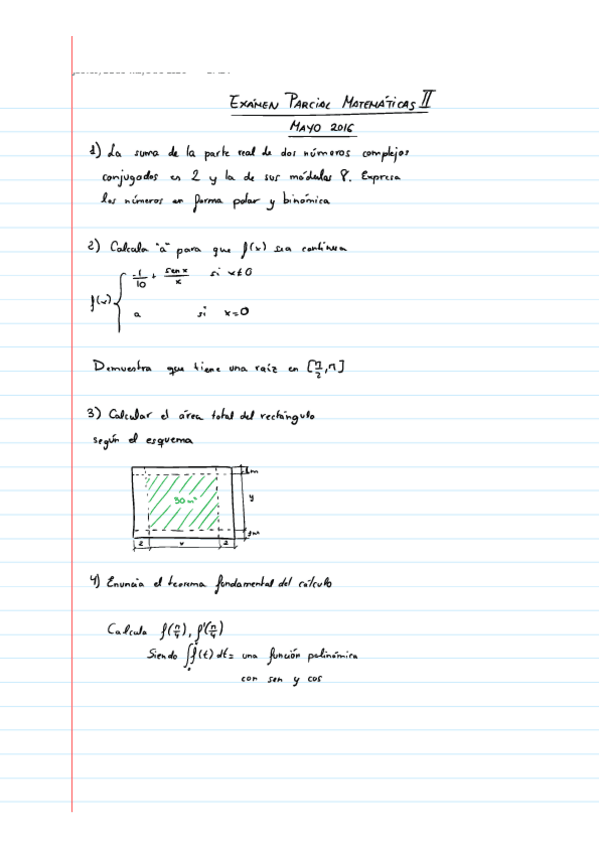 EXAMEN PARCIAL MATEMÁTICAS II
MAYO 2016
1) La suma de la parte real de dos números complejos
conjugados en 2 y la de sus módulos 8. Expresa
los números en forma polar y binómica
2) Calcula "a" para que f(x) sea continua
f(x) { -1/10 + sen x/x si x≠0
a si x=0
Demuestra que tiene una raiz en [π/2, π]
3) Calcular el área total del rectángulo
según el esquema
1m
50 m²
y
1m
2 x 2
4) Enuncia el teorema fundamental del cálculo
Calcula f(π/4), f'(π/4)
Siendo ∫f(t) dt = una función polinómica
con sen y cos